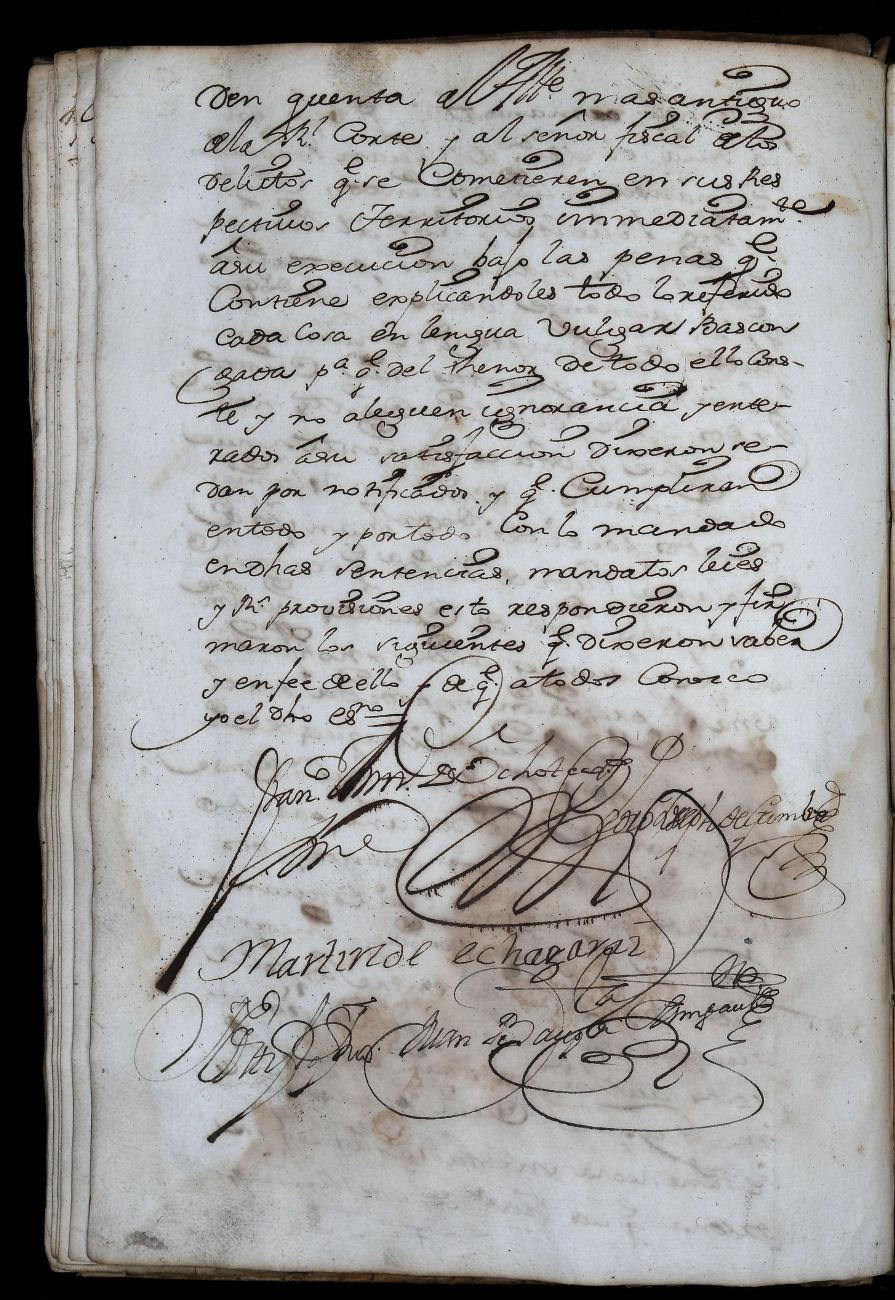 Den quenta al Allde. mas antiguo
de la Rl. Corte y al señor fiscal de los
delictos q.e se Cometieren en sus Res
pectiuos Territorios immediatam.te
â su execucion bajo las penas q.e
Contiene explicandoles todo lo referido
cada Cosa en lengua Vulgar Bascon
gada p.a q.e del thenor de todo ello Cons-
te y no aleguen ignorancia y ente-
rados â su satisfaccion Dixeron se
dan por notificados y q.e Cumpliran
en todo y por todo Con lo mandado
en dhas sentencias, mandatos leies
y Rs. provissiones esto respondieron y fir
maron los siguientes q. dixeron saber
y en fee de ello y de q.e a todos Conozco
yo el dho es.no
Juan
Pedro Joseph de
Martin de echagarai
Juan Bauptta